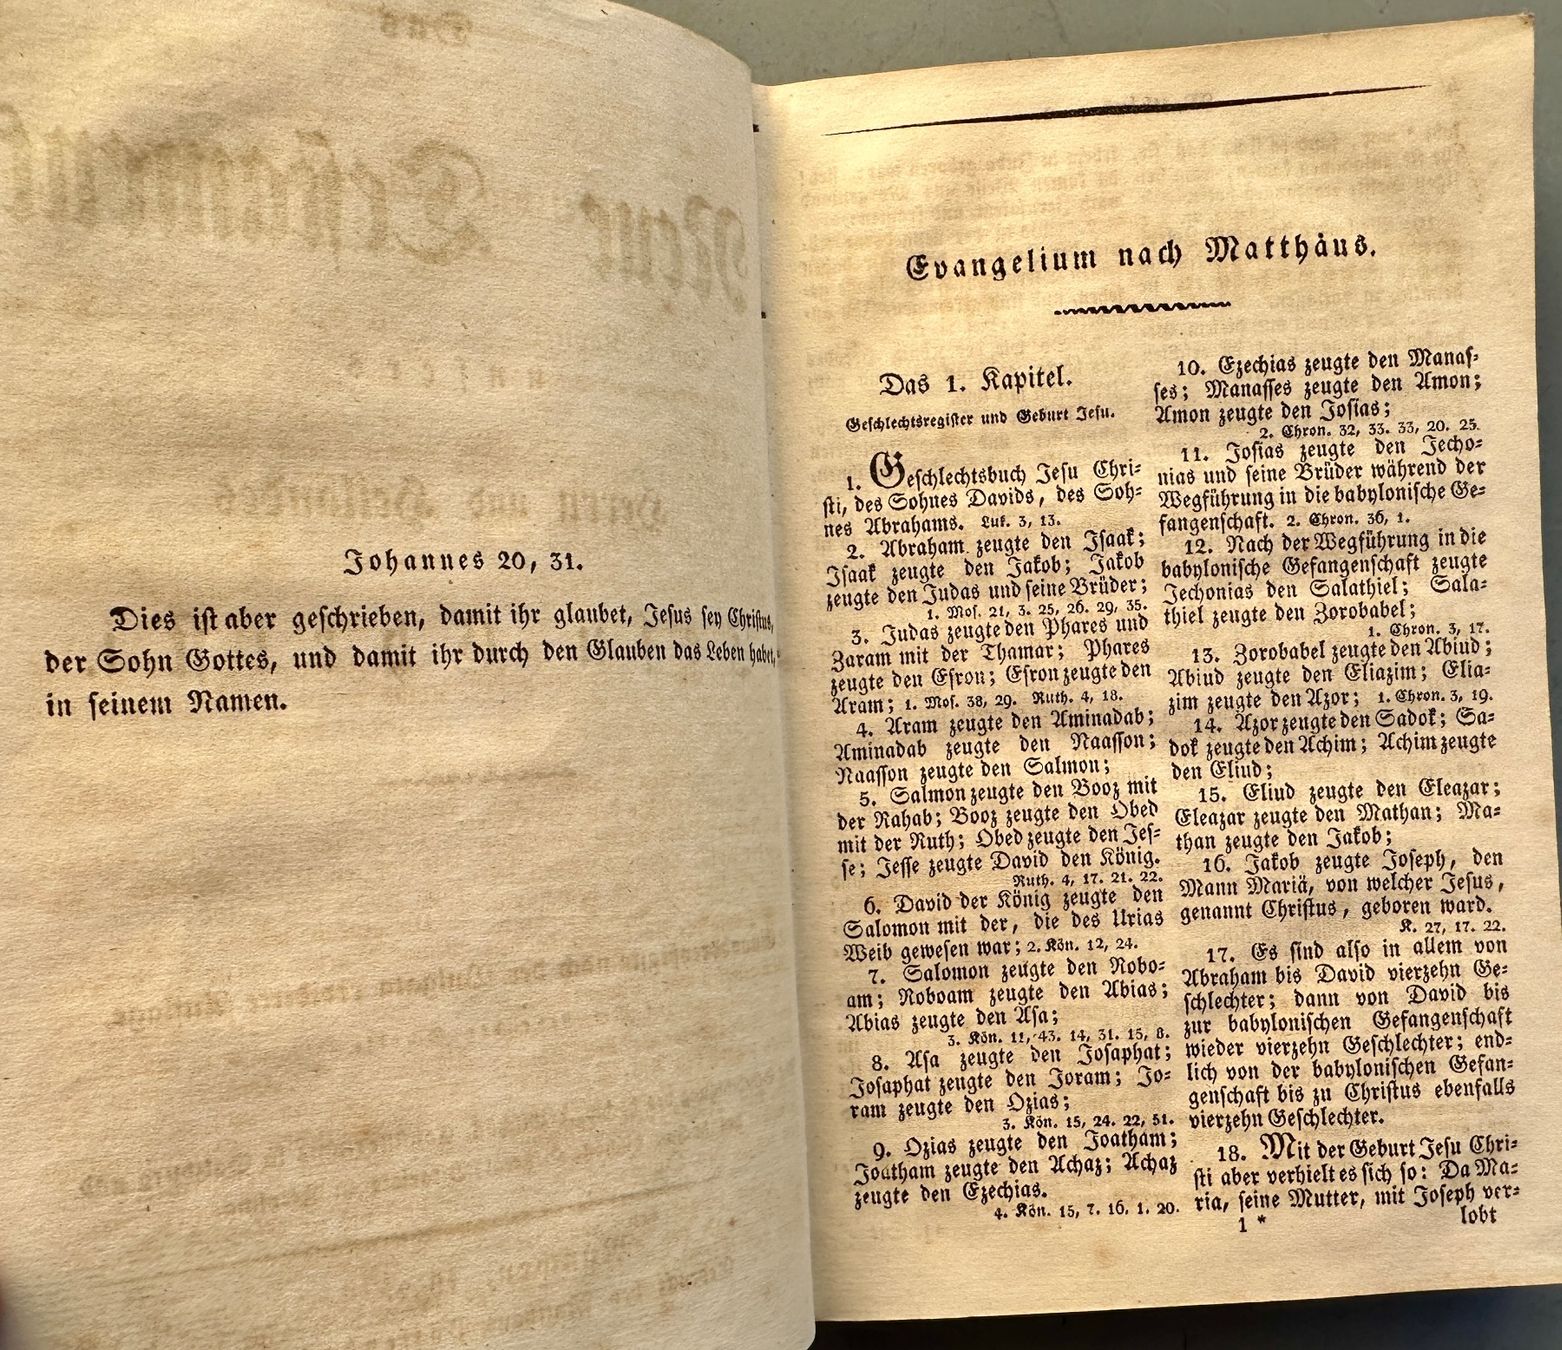 Johannes 20, 31.
Dies ist aber geschrieben, damit ihr glaubet, Jesus sey Christus,
der Sohn Gottes, und damit ihr durch den Glauben das Leben habet,
in seinem Namen.
Evangelium nach Matthäus.
Das 1. Kapitel.
Geschlechtsregister und Geburt Jesu.
1. Geschlechtsbuch Jesu Chri-
sti, des Sohnes Davids, des Soh-
nes Abrahams. Luk. 3, 13.
2. Abraham zeugte den Isaak;
Isaak zeugte den Jakob; Jakob
zeugte den Judas und seine Brüder;
1. Mos. 21, 3. 25, 26. 29, 35.
3. Judas zeugte den Phares und
Zaram mit der Thamar; Phares
zeugte den Esron; Esron zeugte den
Aram; 1. Mos. 38, 29. Ruth. 4, 18.
4. Aram zeugte den Aminadab;
Aminadab zeugte den Naasson;
Naasson zeugte den Salmon;
5. Salmon zeugte den Booz mit
der Rahab; Booz zeugte den Obed
mit der Ruth; Obed zeugte den Jes-
se; Jesse zeugte David den König.
Ruth. 4, 17. 21. 22.
6. David der König zeugte den
Salomon mit der, die des Urias
Weib gewesen war; 2. Kön. 12, 24.
7. Salomon zeugte den Robo-
am; Roboam zeugte den Abias;
Abias zeugte den Asa;
3. Kön. 11, 43. 14, 31. 15, 8.
8. Asa zeugte den Josaphat;
Josaphat zeugte den Joram; Jo-
ram zeugte den Ozias;
3. Kön. 15, 24. 22, 51.
9. Ozias zeugte den Joatham;
Joatham zeugte den Achaz; Achaz
zeugte den Ezechias.
4. Kön. 15, 7. 16, 1. 20.
10. Ezechias zeugte den Manas-
ses; Manasses zeugte den Amon;
Amon zeugte den Josias;
2. Chron. 32, 33. 33, 20. 25.
11. Josias zeugte den Jecho-
nias und seine Brüder während der
Wegführung in die babylonische Ge-
fangenschaft. 2. Chron. 36, 1.
12. Nach der Wegführung in die
babylonische Gefangenschaft zeugte
Jechonias den Salathiel; Sala-
thiel zeugte den Zorobabel;
1. Chron. 3, 17.
13. Zorobabel zeugte den Abiud;
Abiud zeugte den Eliazim; Elia-
zim zeugte den Azor; 1. Chron. 3, 19.
14. Azor zeugte den Sadok; Sa-
dok zeugte den Achim; Achim zeugte
den Eliud;
15. Eliud zeugte den Eleazar;
Eleazar zeugte den Mathan; Ma-
than zeugte den Jakob;
16. Jakob zeugte Joseph, den
Mann Mariä, von welcher Jesus,
genannt Christus, geboren ward.
K. 27, 17. 22.
17. Es sind also in allem von
Abraham bis David vierzehn Ge-
schlechter; dann von David bis
zur babylonischen Gefangenschaft
wieder vierzehn Geschlechter; end-
lich von der babylonischen Gefan-
genschaft bis zu Christus ebenfalls
vierzehn Geschlechter.
18. Mit der Geburt Jesu Chri-
sti aber verhielt es sich so: Da Ma-
ria, seine Mutter, mit Joseph ver-
1 * lobt